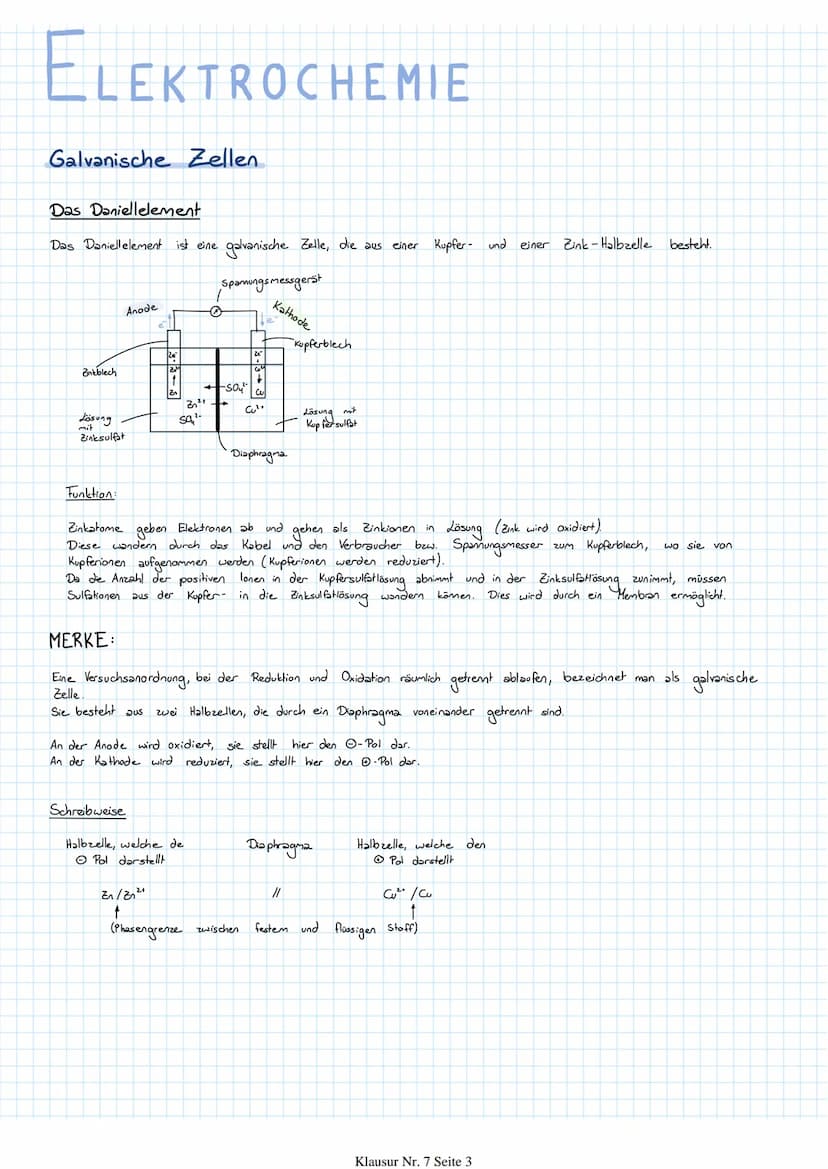 ELEKTROCHEMIE
Galvanische Zellen
Das Daniellelement
Das Daniellelement ist eine galvanische Zelle, die aus einer Kupfer- und einer Zink-Halbzelle besteht.
Spannungsmessgerät
Anode
Kathode
e⁻
e⁻
Kupferblech
Zinkblech
Zn
SO₄²⁻
Cu
Zn²⁺
Cu²⁺
SO₄²⁻
Lösung mit Zinksulfat
Lösung mit Kupfersulfat
Diaphragma
Funktion:
Zinkatome geben Elektronen ab und gehen als Zinkionen in Lösung (Zink wird oxidiert)
Diese wandern durch das Kabel und den Verbraucher bzw. Spannungsmesser zum Kupferblech, wo sie von
Kupferionen aufgenommen werden (Kupferionen werden reduziert).
Da die Anzahl der positiven Ionen in der Kupfersulfatlösung abnimmt und in der Zinksulfatlösung zunimmt, müssen
Sulfationen aus der Kupfer- in die Zinksulfatlösung wandern können. Dies wird durch ein Membran ermöglicht.
MERKE:
Eine Versuchsanordnung, bei der Reduktion und Oxidation räumlich getrennt ablaufen, bezeichnet man als galvanische
Zelle.
Sie besteht aus zwei Halbzellen, die durch ein Diaphragma voneinander getrennt sind.
An der Anode wird oxidiert, sie stellt hier den ⊖-Pol dar.
An der Kathode wird reduziert, sie stellt hier den ⊕-Pol dar.
Schreibweise
Halbzelle, welche de Diaphragma Halbzelle, welche den
⊖ Pol darstellt ⊕ Pol darstellt
Zn/Zn²⁺ // Cu²⁺/Cu
(Phasengrenze zwischen festem und flüssigen Stoff)
Klausur Nr. 7 Seite 3